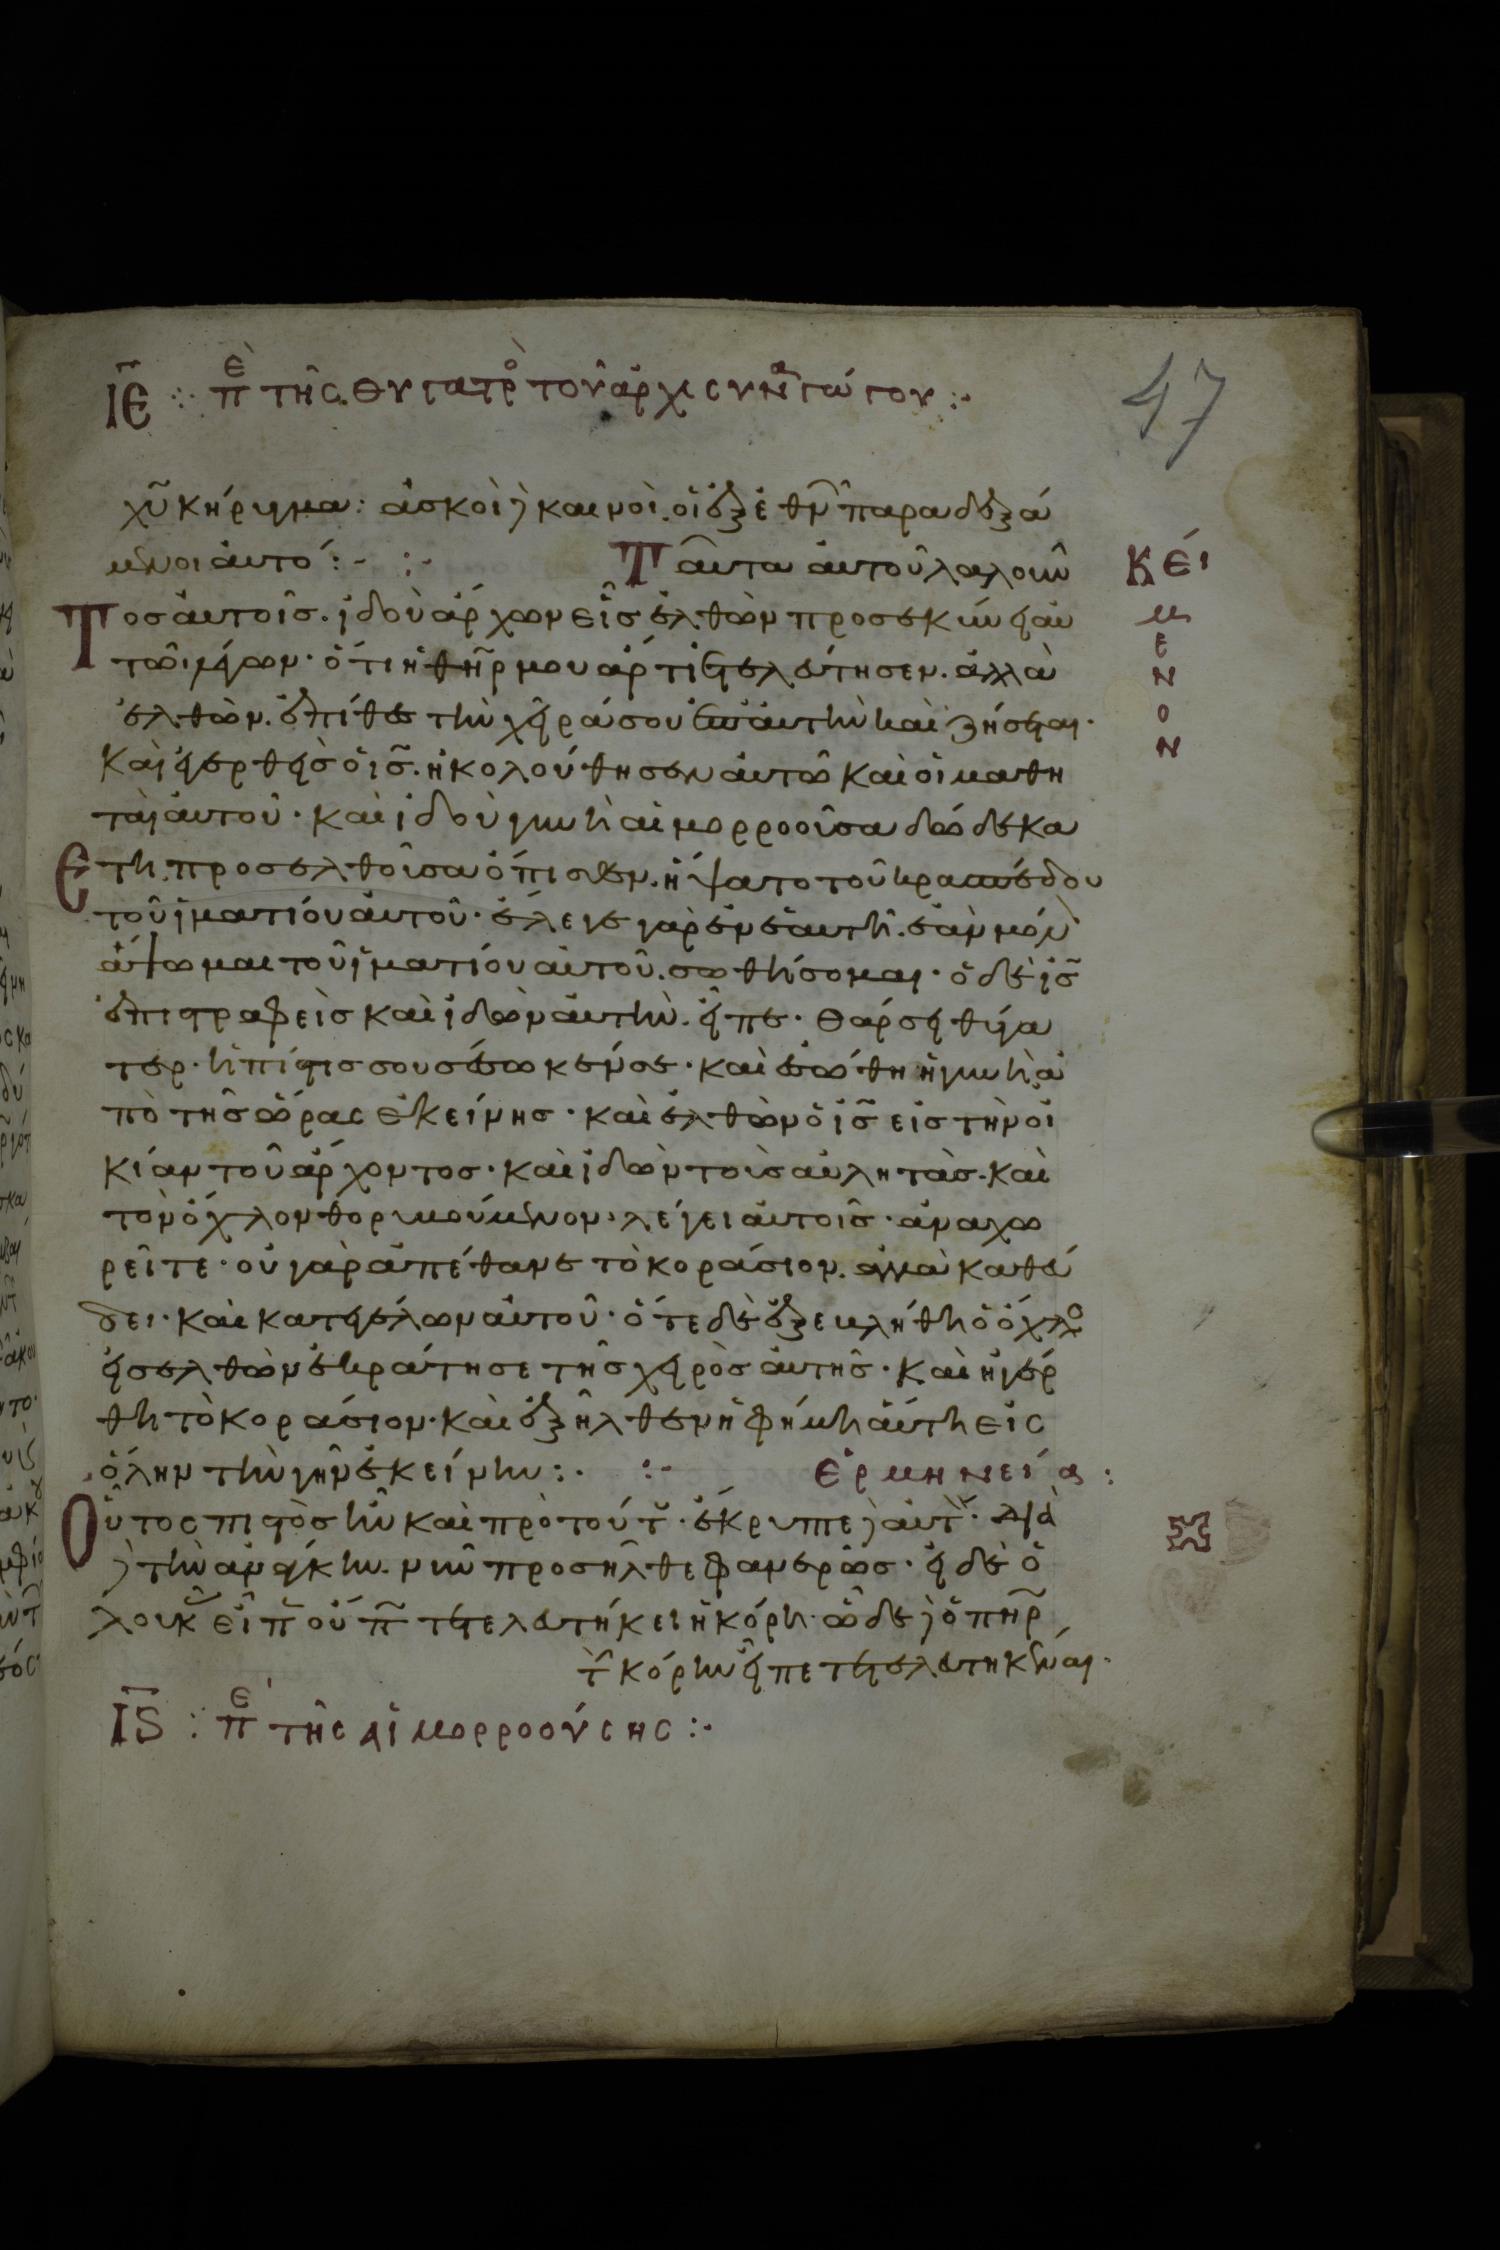 ΙΕ ⁘ πε τῆς θυγατρο τοῦ ἀρχισυναγώγου :·
47
χυ κήρυγμα : ἀσκοὶ καινοὶ. οἱ ἐξ ἐθν παραδεξά
μενοι αὐτό :- :- Ταῦτα αὐτοῦ λαλοῦν
τος αὐτοῖς. ἰδοὺ ἄρχων εἷς ἐλθὼν προσεκύνει αὐ
τῶ λέγων· ὅτι ἡ θηρ μου ἄρτι ἐτελεύτησεν. ἀλλὰ
ἐλθὼν. ἐπίθες τὴν χεῖρά σου ἐπ' αὐτὴν καὶ ζήσεται·
καὶ ἐγερθεὶς ὁ ις. ἠκολούθησεν αὐτῶ καὶ οἱ μαθη
ταὶ αὐτοῦ· καὶ ἰδοὺ γυνὴ αἱμορροοῦσα δώδεκα
Ετη. προσελθοῦσα ὄπισθεν. ἥψατο τοῦ κρασπέδου
τοῦ ἱματίου αὐτοῦ· ἔλεγε γὰρ ἐν ἑαυτῆ. ἐὰν μόν
ἅψωμαι τοῦ ἱματίου αὐτοῦ. σωθήσομαι· ὁ δὲ ις
ἐπιστραφεὶς καὶ ἰδὼν αὐτὴν. εἶπε· Θάρσει θύγα
τερ· ἡ πίστις σου σέσωκέν σε· καὶ ἐσώθη ἡ γυνὴ ἀ
πὸ τῆς ὥρας ἐκείνης· καὶ ἐλθὼν ὁ ις εἰς τὴν οἰ
κίαν τοῦ ἄρχοντος· καὶ ἰδὼν τοὺς αὐλητὰς. καὶ
τὸν ὄχλον θορυβούμενον· λέγει αὐτοῖς· ἀναχω
ρεῖτε· οὐ γὰρ ἀπέθανε τὸ κοράσιον. ἀλλὰ καθεύ
δει· καὶ κατεγέλων αὐτοῦ· ὅτε δὲ ἐξεβλήθη ὁ ὄχλο
εἰσελθὼν ἐκράτησε τῆς χειρὸς αὐτῆς· καὶ ἠγέρ
θη τὸ κοράσιον· καὶ ἐξῆλθεν ἡ φήμη αὕτη εἰς
ὅλην τὴν γῆν ἐκείνην :· :- Ἑρμηνεία :
Οὗτος πιστὸς ἦν καὶ πρὸ τούτ· ἔκρυπτε αὐτ· διὰ
τὴν ἀνάγκην. νῦν προσῆλθε φανερῶς· εἰ δὲ ὁ
λουκ εἶπ οὔπ τετελευτήκει ἡ κόρη· ὧδε ὁ πηρ
τ κόρην εἶπε τετελευτηκέναι·
ΙϚ : πε τῆς αἱμορροούσης :·
Κεί
μ
ε
ν
ο
ν